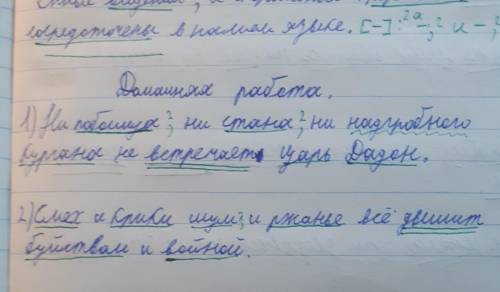 сосредоточены в нашем языке. [–]: 2а, 2 и –,
Домашняя работа.
1) Ни побоища, ни стана, ни надгробного
кургана не встречает царь Дадон.
2) Смех и крики шум, и ржанье всё двишит
буйством и войной.